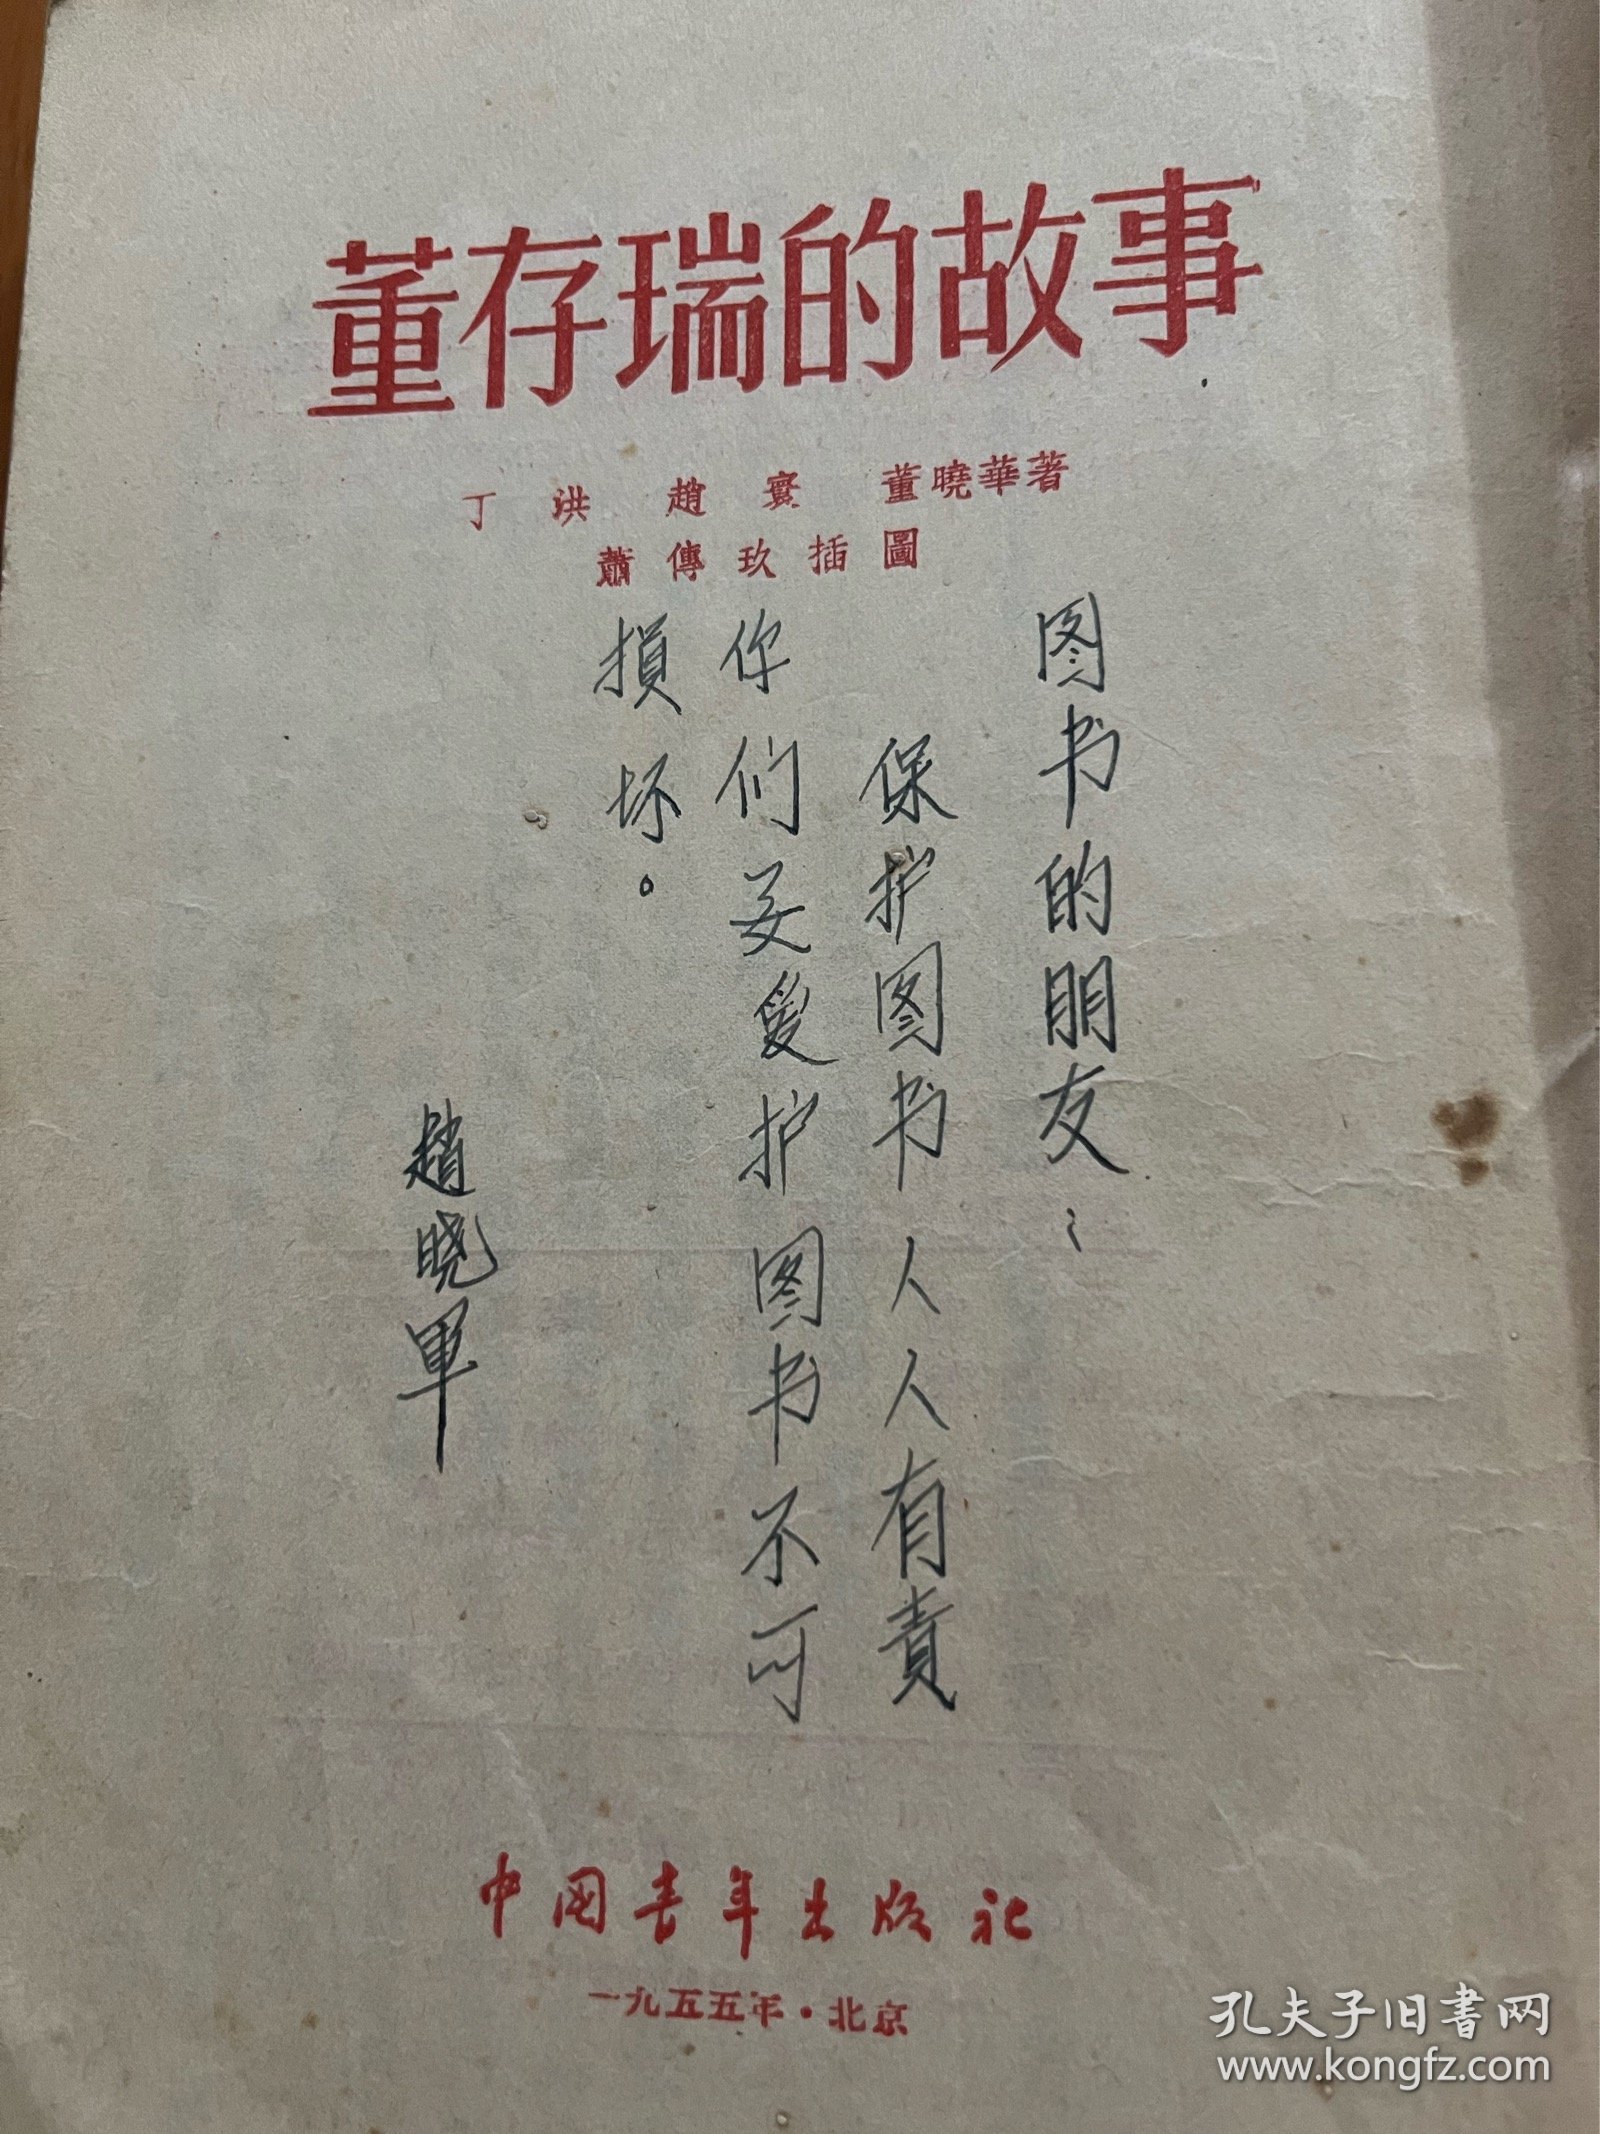 董存瑞的故事
丁洪 趙寰 董曉華著
蕭傳玖插圖
图书的朋友：
保护图书人人有責
你们要爱护图书不可
損坏。
趙晓軍
中国青年出版社
一九五五年·北京
孔夫子旧書网
www.kongfz.com